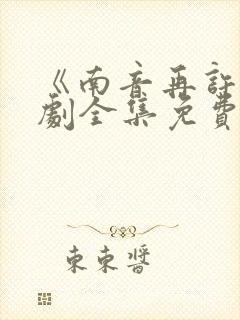 《南音再許
劇全集免費
東東醬